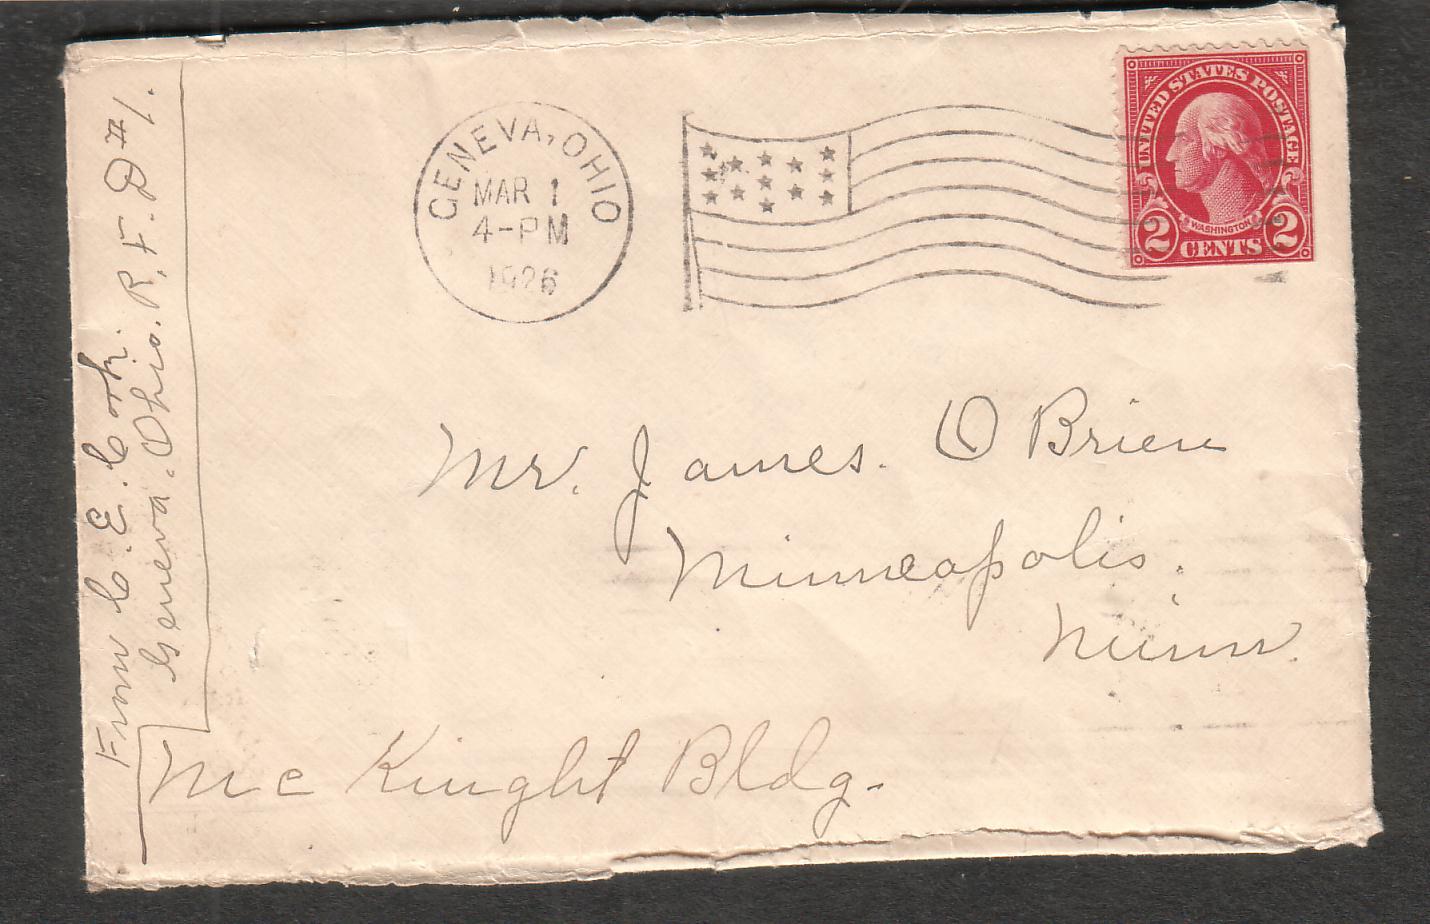 From C. E. Cork.
Geneva. Ohio. R. F. D #1.
GENEVA, OHIO
MAR 1
4-PM
1926
UNITED STATES POSTAGE
WASHINGTON
2 CENTS 2
Mr. James. O Brien
Minneapolis.
Minn.
Mc Knight Bldg.